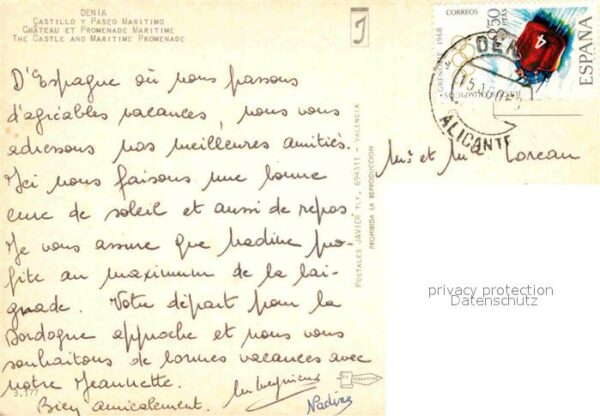 DENIA
CASTILLO Y PASEO MARITIMO
CHÂTEAU ET PROMENADE MARITIME
THE CASTLE AND MARITIME PROMENADE
J
CORREOS
1'50
PTAS
ESPAÑA
GRENOBLE 1968
4
DENIA
ALICANTE
D'Espagne où nous passons
d'agréables vacances, nous vous
adressons nos meilleures amitiés.
Ici nous faisons une bonne
cure de soleil et aussi de repos.
Je vous assure que Nadine pro-
fite au maximum de la bai-
gnade. Votre départ pour la
Dordogne approche et nous vous
souhaitons de bonnes vacances avec
votre Jeannette.
Bien amicalement.
Nadine
Mr et Me Loreau
POSTALES JAVIER TLF. 694511 - VALENCIA
PROHIBIDA LA REPRODUCCION
3.177
privacy protection
Datenschutz